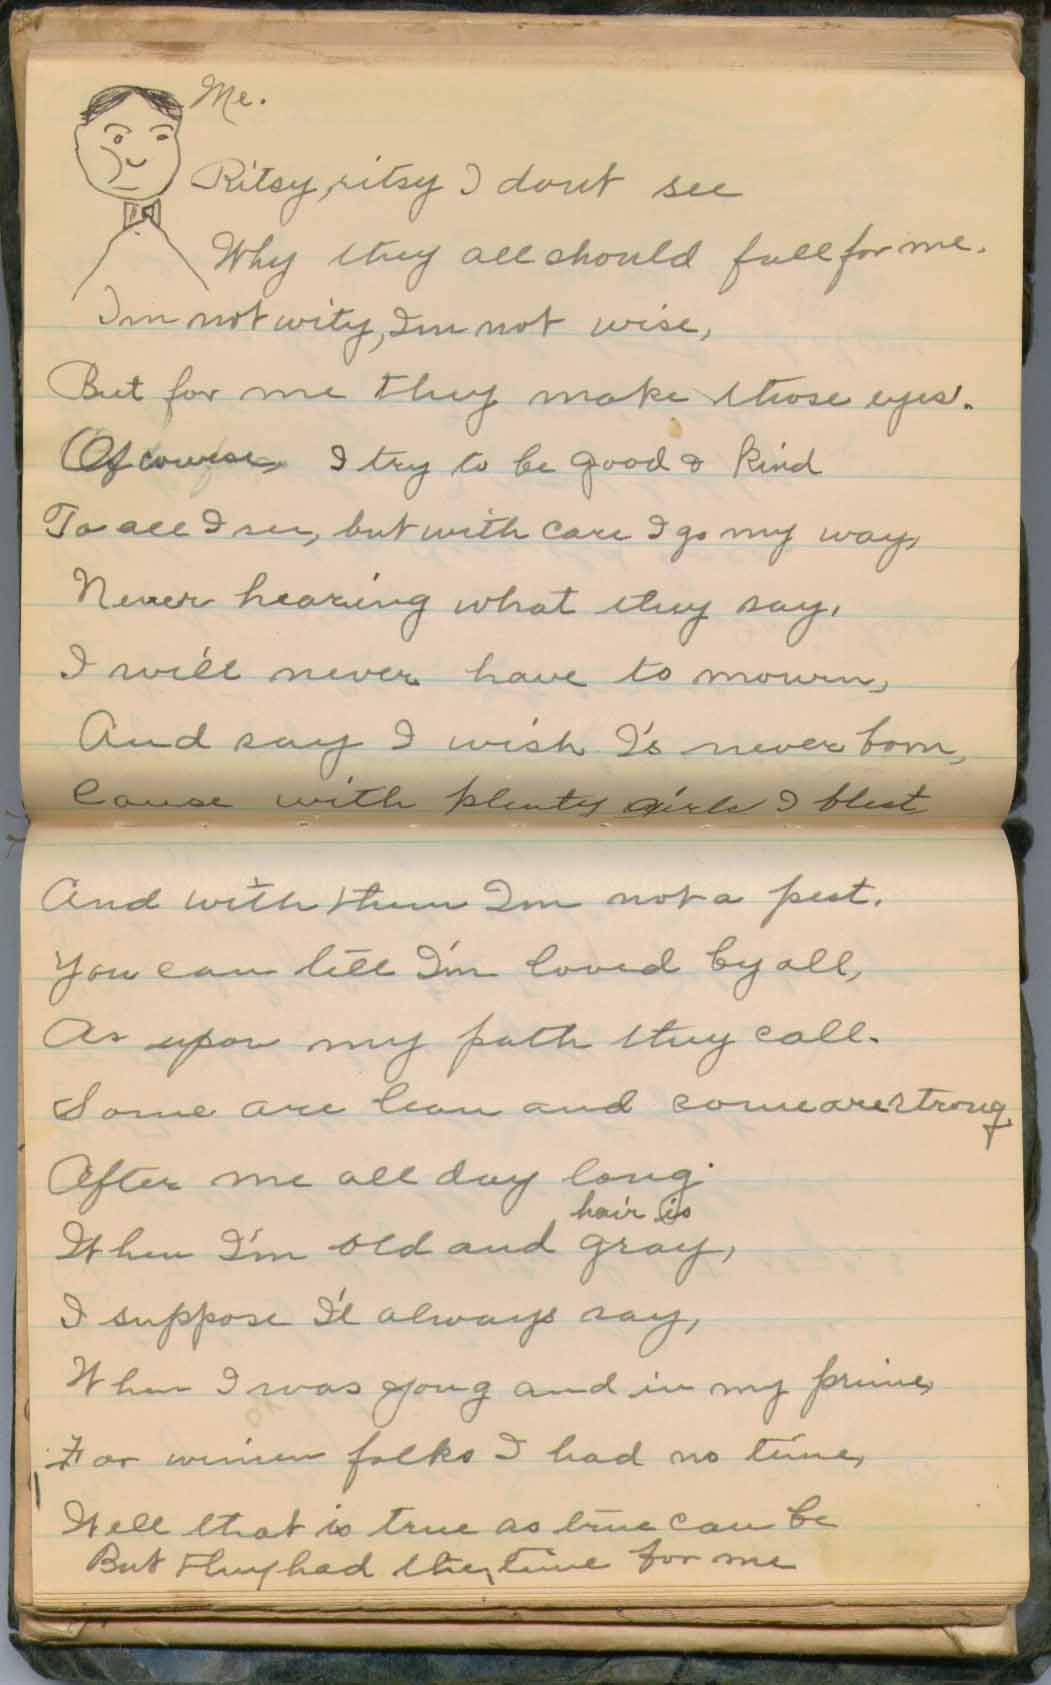 Me.
Ritsy, ritsy I dont see
Why they all should fall for me.
Im not wity, Im not wise,
But for me they make those eyes.
Of course, I try to be good & kind
To all I see, but with care I go my way,
Never hearing what they say.
I will never have to mourn,
And say I wish I's never born,
Cause with plenty girls I blest
And with them Im not a pest.
You can tell I'm loved by all,
As upon my path they call.
Some are lean and some are strong
After me all day long.
hair is
When I'm old and gray,
I suppose I'll always say,
When I was yong and in my prime,
For wimen folks I had no time,
Well that is true as true can be
But they had the time for me